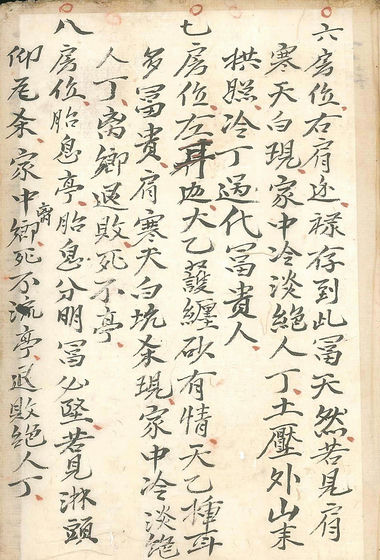 六房位右肩边禄存到此冨天然若見肩
寒天白現家中冷淡絕人丁土壓外山来
拱照冷丁過代冨貴人
七房位左耳边太乙護纏砂有情天乙種耳
多冨貴肩寒天白坑杀現家中冷淡絕
人丁离鄉退敗死不亭
八房位胎息亭胎息分明冨公堅若見淋頭
仰尾杀家中離鄉死不流亭退敗絕人丁